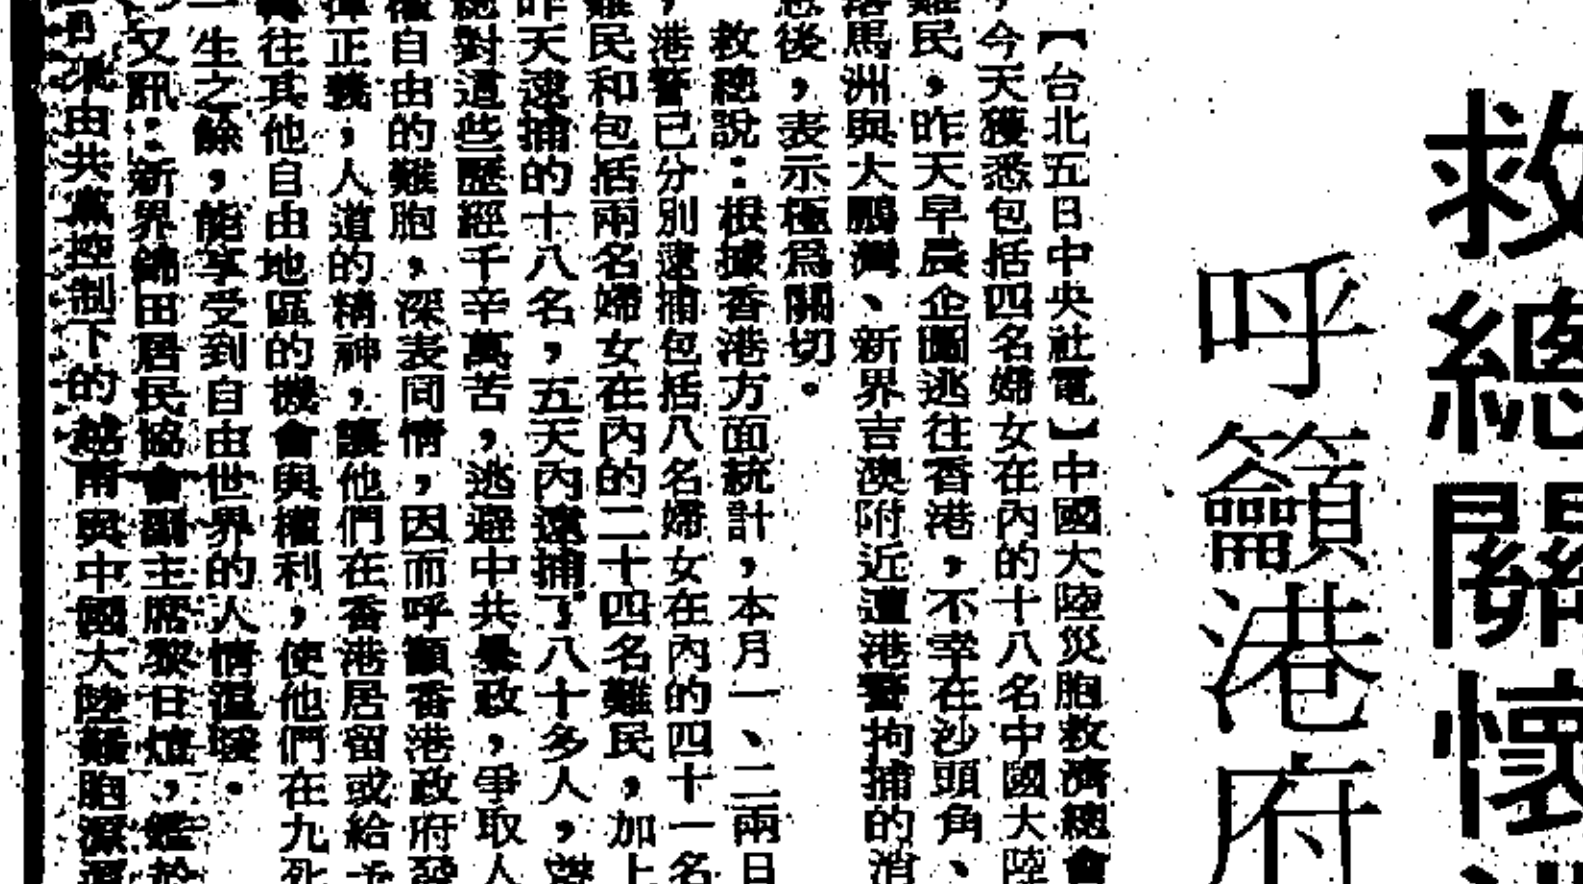 救總關懷
呼籲港府
【台北五日中央社電】中國大陸災胞救濟總會
，今天獲悉包括四名婦女在內的十八名中國大陸
難民，昨天早晨企圖逃往香港，不幸在沙頭角、
落馬洲與大鵬灣、新界吉澳附近遭港警拘捕的消
息後，表示極為關切。
救總說：根據香港方面統計，本月一、二兩日
，港警已分別逮捕包括八名婦女在內的四十一名
難民和包括兩名婦女在內的二十四名難民，加上
昨天逮捕的十八名，五天內逮捕了八十多人，
總對這些歷經千辛萬苦，逃避中共暴政，爭取人
權自由的難胞，深表同情，因而呼籲香港政府發
揮正義，人道的精神，讓他們在香港居留或給予
往其他自由地區的機會與權利，使他們在九死
一生之餘，能享受到自由世界的人情溫暖。
又訊：新界錦田居民協會副主席黎日煊，鑑於
由共黨控制下的越南與中國大陸難胞